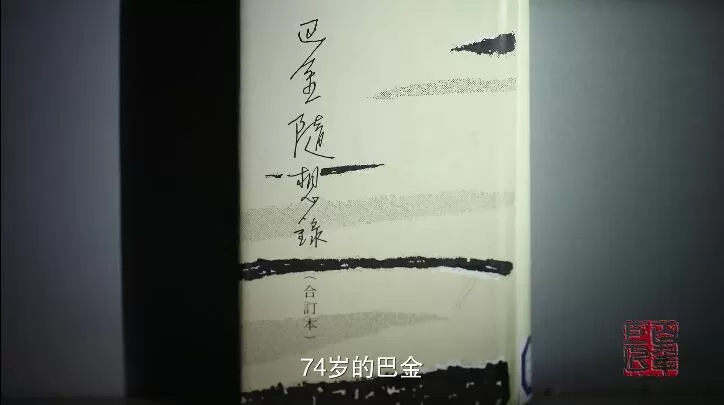 巴金隨想錄
（合訂本）
74岁的巴金